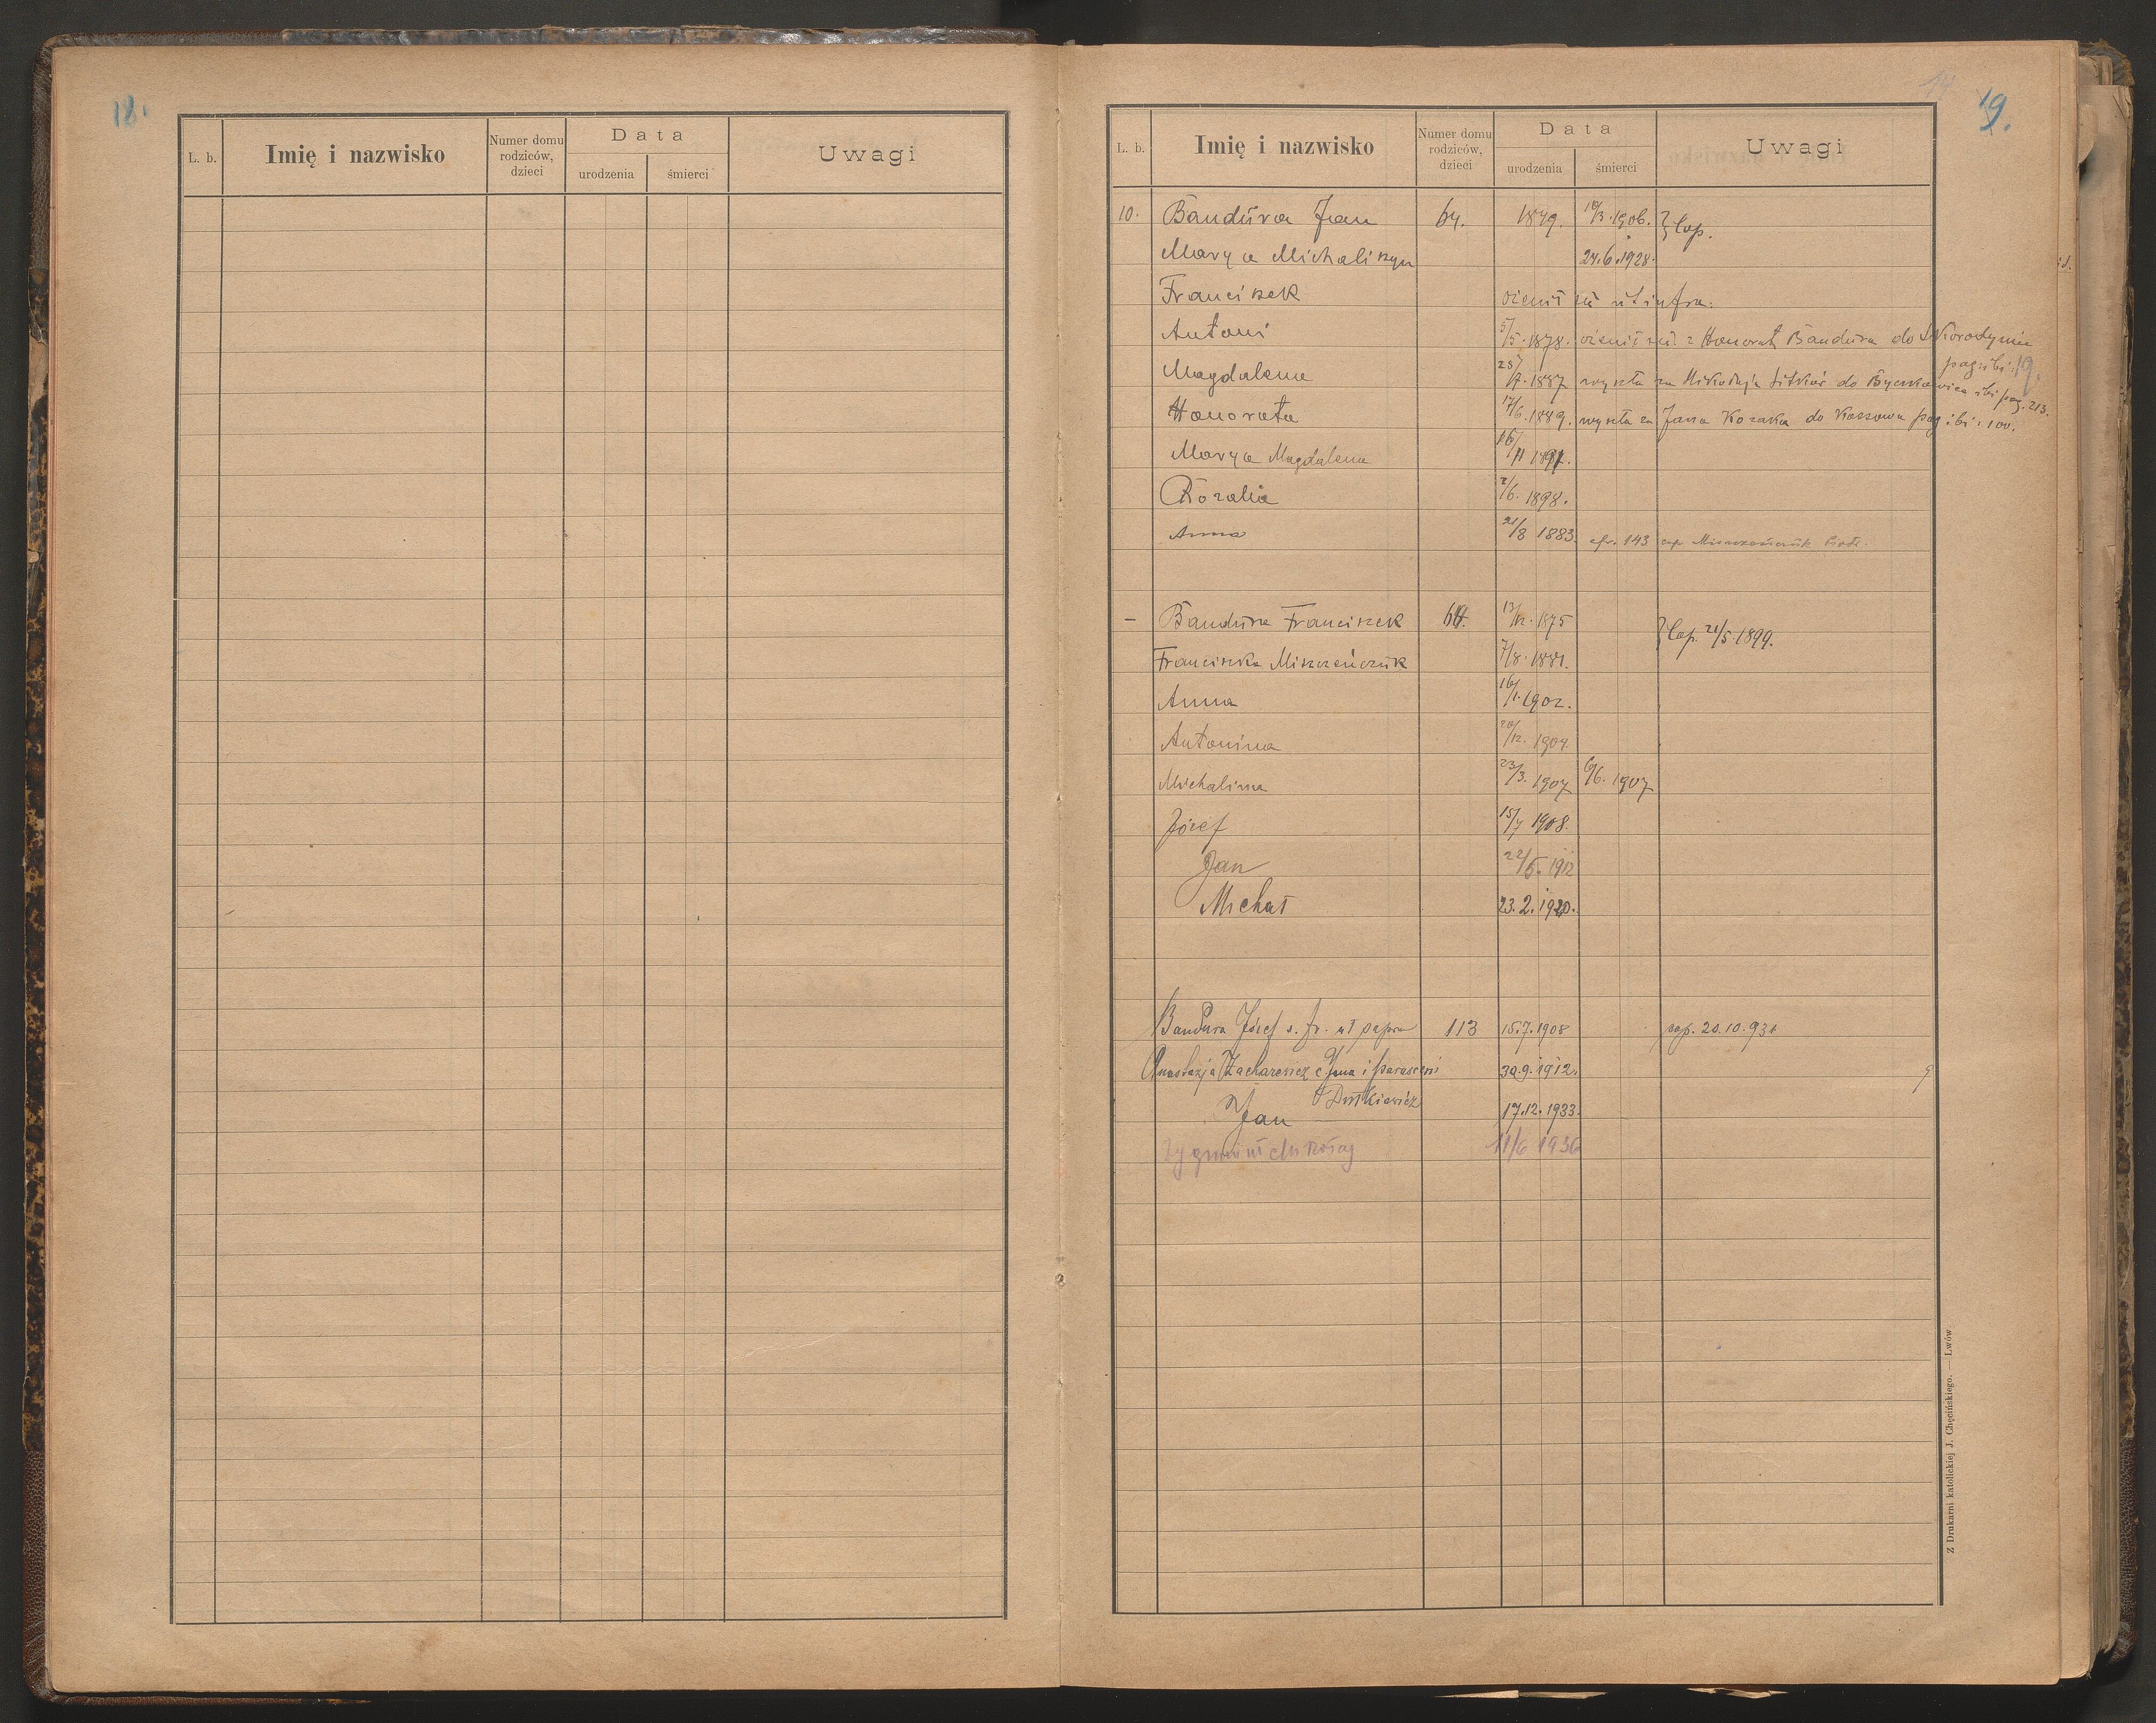 18.
L. b.
Imię i nazwisko
Numer domu rodziców, dzieci
Data
urodzenia
śmierci
Uwagi
19.
L. b.
Imię i nazwisko
Numer domu rodziców, dzieci
Data
urodzenia
śmierci
Uwagi
10. Bandura Jan 64. 1849. 10/3. 1906. } Cop.
Marya Michaliszyn 24.6.1928.
Franciszek ożenił się ut infra.
Antoni 5/5. 1878. ożenił się z Honoratą Bandura do
pag. ibi: 19.
Magdalena 25/7. 1887 wyszła za Mikołaja do ibi pag. 213.
Honorata 17/6. 1889. wyszła za Jana Kozaka do Kossowa pag. ibi: 100.
Marya Magdalena 16/11 1891.
Rozalia 2/6. 1898.
Anna 21/8 1883. cfr. 143 cop. Miszczeńczuk
– Bandura Franciszek 64. 13/12. 1875 } Cop. 21/5. 1899.
Franciszka Miszczeńczuk 7/8. 1881.
Anna 16/1. 1902.
Antonina 20/12. 1904.
Michalina 23/3. 1907 6/6. 1907
Józef 15/7 1908.
Jan 22/5. 1912
Michał 23.2.1920.
Bandura Józef s. Fr. ut supra 113 15.7.1908 cop. 20.10.931
Anastazja Zacharewicz c. Jana i Parascewi 30.9.1912.
Jan 17.12.1933.
Zygmunt Mikołaj 11/6 1936
Z Drukarni katolickiej J. Chęcińskiego. — Lwów